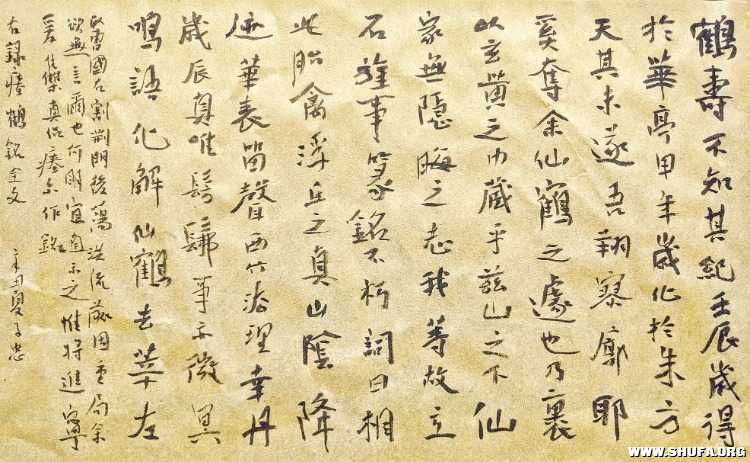 鶴壽不知其紀壬辰歲得
於華亭甲午歲化於朱方
天其未遂吾翔寥廓耶
奚奪余仙鶴之遽也乃裹
以玄黃之巾藏乎茲山之下仙
家無隱晦之志我等故立
石旌事篆銘不朽詞曰相
此胎禽浮丘之真山陰降
迹華表留聲西竹法理幸丹
歲辰真唯髣髴事亦微冥
鳴語化解仙鶴去莘左
取曹國右割荊門後蕩洪流前固重局余
欲無言爾也何明宜直示之惟將進寧
爰集真侶瘞尔作銘
右録瘞鶴銘全文
辛丑夏子忠
WWW.SHUFA.ORG